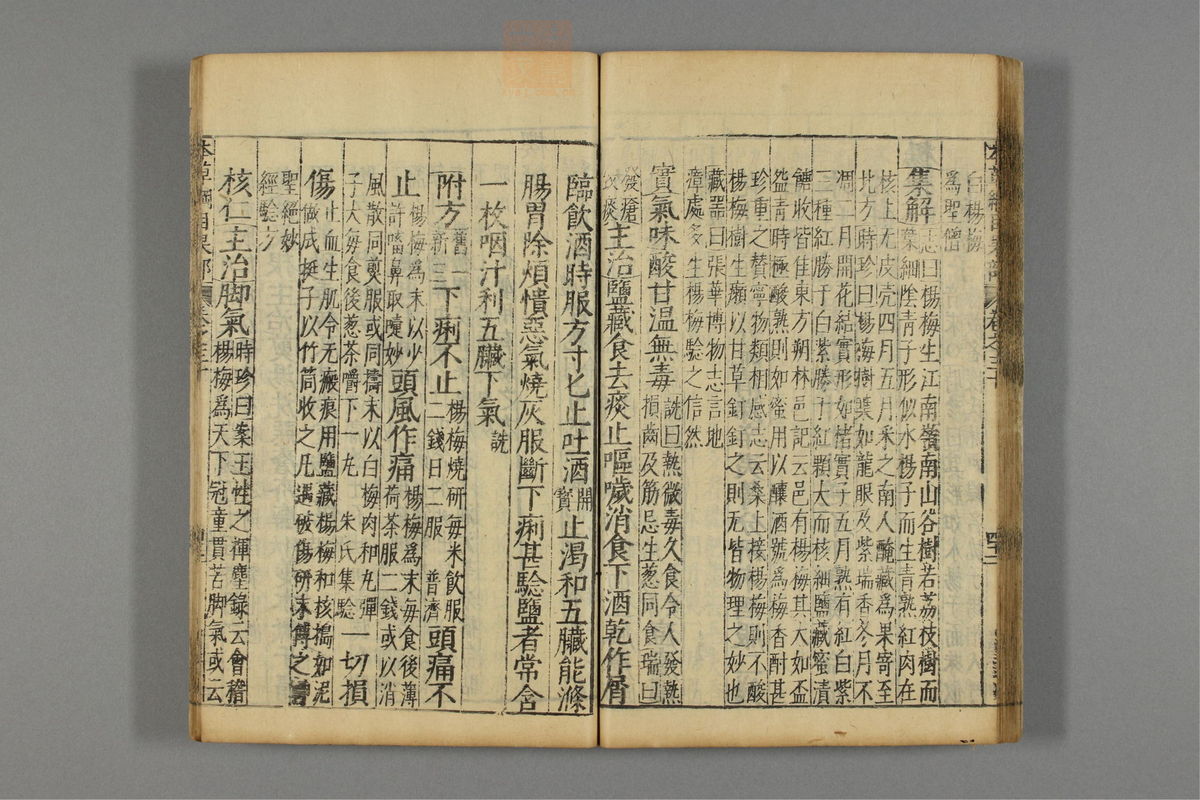 白楊梅
為聖僧
集解志曰楊梅生江南嶺南山谷樹若荔枝樹而
葉細陰青子形似水楊子而生青熟紅肉在
核上无皮壳四月五月采之南人醃藏爲果寄至
北方時珍曰楊梅樹葉如龍眼及紫瑞香冬月不
凋二月開花結實形如楮實子五月熟有紅白紫
三種紅勝于白紫勝于紅顆大而核細鹽藏蜜漬
餹收皆佳東方朔林邑記云邑有楊梅其大如盃
盌青時極酸熟則如蜜用以釀酒號爲梅香酎甚
珍重之贊寧物類相感志云桑上接楊梅則不酸
楊梅樹生癩以甘草釘釘之則无皆物理之妙也
藏器曰張華博物志言地
瘴處多生楊梅驗之信然
實氣味酸甘温無毒詵曰熱微毒久食令人發熱
損齒及筋忌生葱同食瑞曰
發瘡致痰主治鹽藏食去痰止嘔噦消食下酒乾作屑
臨飲酒時服方寸匕止吐酒開寶止渴和五臟能滌
腸胃除煩憒惡氣燒灰服斷下痢甚驗鹽者常含
一枚咽汁利五臟下氣詵
附方舊一新三下痢不止楊梅燒研毎米飲服二錢日二服普濟頭痛不
止楊梅爲末以少許㗜鼻取嚏妙頭風作痛楊梅爲末毎食後薄荷茶服二錢或以消
風散同煎服或同擣末以白梅肉和丸彈
子大毎食後葱茶嚼下一丸朱氏集驗一切損
傷止血生肌令无瘢痕用鹽藏楊梅和核搗如泥
做成挺子以竹筒收之凡遇破傷研末傅之
聖絶妙
經驗方
核仁主治脚氣時珍曰案王性之揮麈錄云會稽
楊梅爲天下冠童貫苦脚氣或云
本草綱目果部